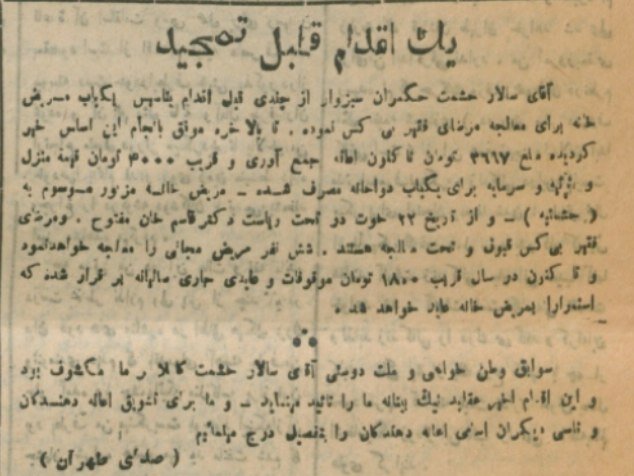 یك اقدام قابل تمجید
آقای سالار حشمت حکمران سبزوار از چندی قبل اقدام بتاسیس یکباب مریض
خانه برای معالجه مرضای فقیر بی کس نموده . تا بالاخره موفق بانجام این اساس خیر
گردیده مبلغ ۳۶۶۷ تومان تاکنون اعانه جمع آوری و قریب ۳۰۰۰ تومان قیمة منزل
و اثاثیه و سرمایه برای یکباب دواخانه مصرف شده ــ مریض خانه مزبور موسوم به
( حشمتیه ) ــ و از تاریخ ۲۲ حوت در تحت ریاست دکتر قاسم خان مفتوح . ومرضای
فقیر بی‌کس قبول و تحت معالجه هستند . شش نفر مریض مجانی را معالجه خواهدنمود
و تا کنون در سال قریب ۱۸۰۰ تومان موقوفات و عایدی جاری سالیانه بر قرار شده که
استمرارا بمریض خانه عاید خواهد شد .
سوابق وطن خواهی و ملت دوستی آقای سالار حشمت کاملا بر ما مکشوف بود
و این اقدام اخیر عقاید نیك ما را تائید مینماید ــ و ما برای تشویق اعانه دهندگان
و تاسی دیگران اسامی اعانه دهندگان را بتفصیل درج مینمائیم
( صدای طهران )